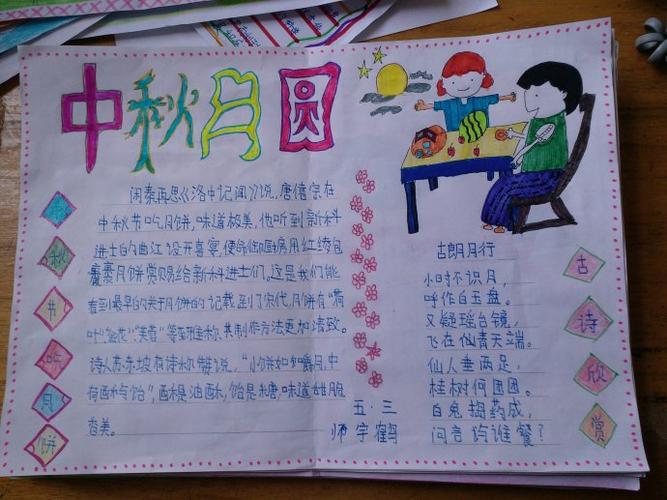 中秋月圆
中秋节吃月饼
闲秦再思《洛中记闻》说,唐僖宗在
中秋节吃月饼,味道极美,他听到新科
进士的曲江设开喜宴,便命御厨房用红绫包
裹月饼赏赐给新科进士们。这是我们能
看到最早的关于月饼的记载到了宋代,月饼有“荷
叶”“金花”“芙蓉”等雅称,其制作方法更加精致。
诗人苏东坡有诗称赞说,“小饼如嚼月,中
有酥与饴”,酥是油酥,饴是糖,味道甜脆
香美。
五·三
师宇鹤
古朗月行
小时不识月,
呼作白玉盘。
又疑瑶台镜,
飞在仙青天端。
仙人垂两足,
桂树何团团。
白兔捣药成,
问言与谁餐?
古诗欣赏